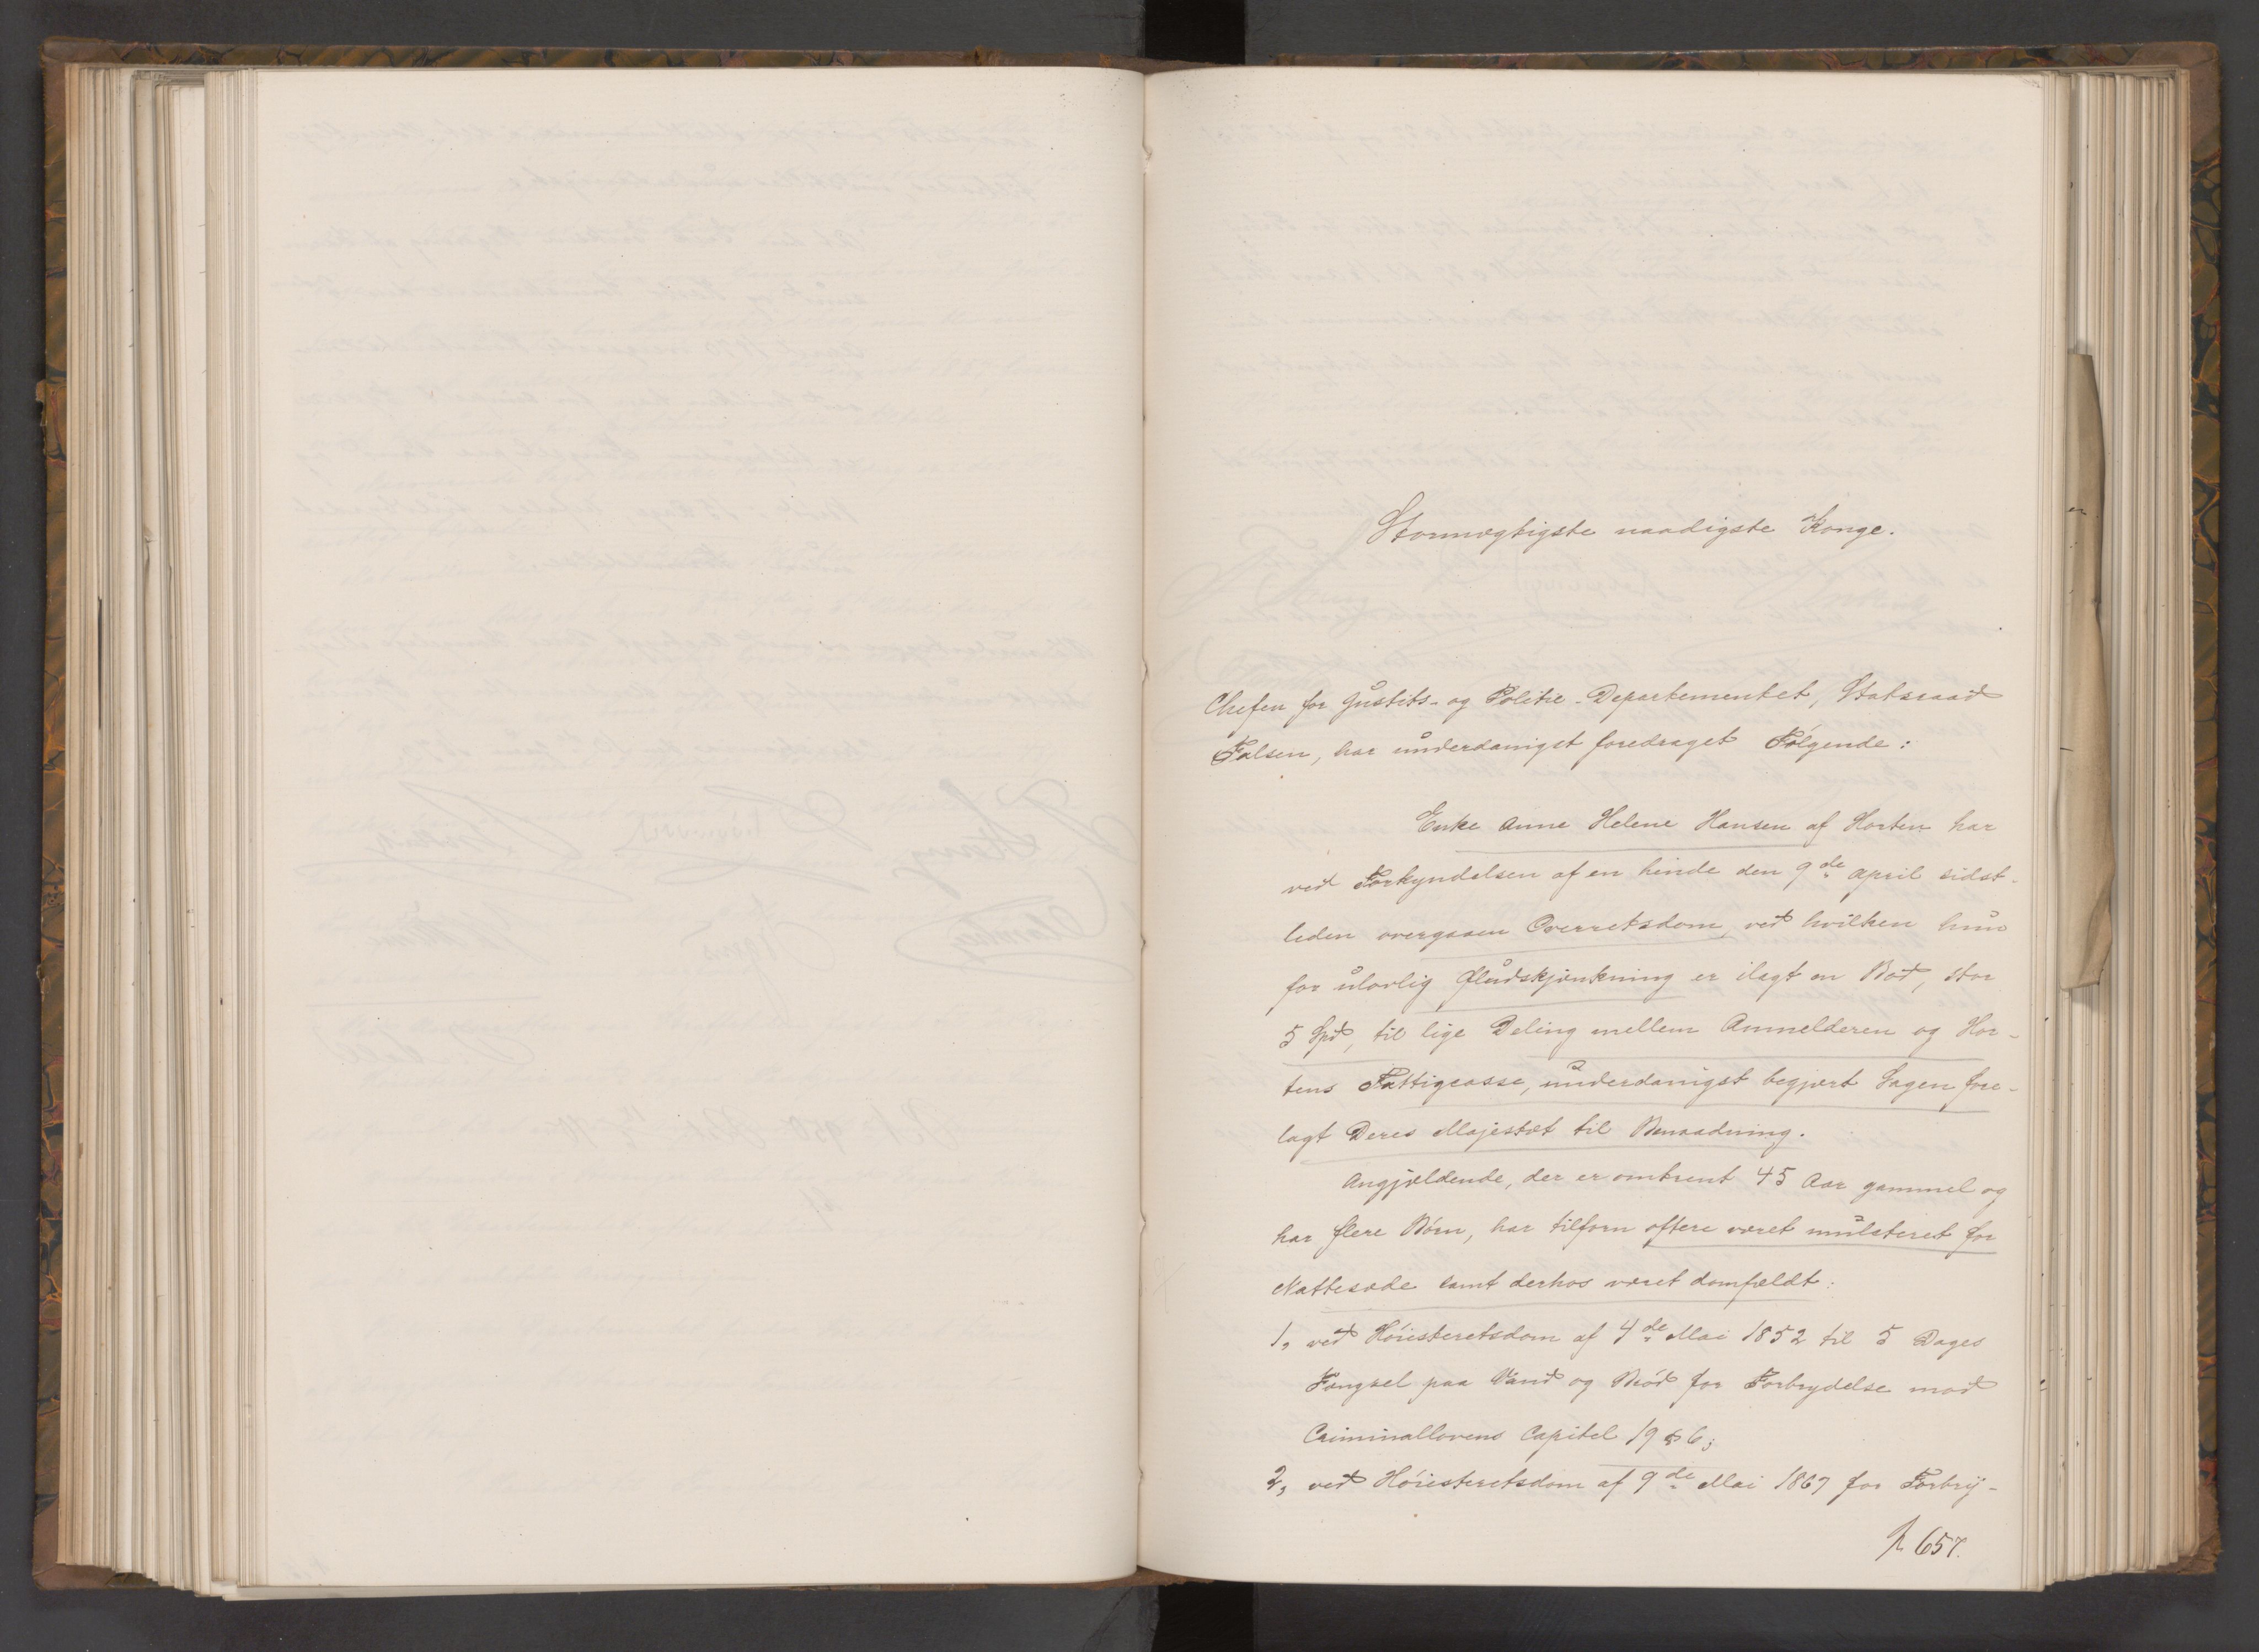 Stormægtigste naadigste Konge.
Chefen for Justits- og Politie-Departementet, Statsraad
Falsen, har underdanigst foredraget Følgende:
Enke Anne Helene Hansen af Horten har
ved Forkyndelsen af en hende den 9de April sidst-
leden overgaaen Overretsdom, ved hvilken hun
for ulovlig Øludskjænkning er ilagt en Bod, stor
5 Spd, til lige Deling mellem Anmelderen og Hor-
tens Fattigcasse, underdanigst begjært Sagen fore-
lagt Deres Majestæt til Benaadning.
Angjældende, der er omtrent 45 Aar gammel og
har flere Børn, har tilforn oftere været mulcteret for
Nattesæde samt derhos været domfældt:
1, ved Høiesteretsdom af 4de Mai 1852 til 5 Dages
Fængsel paa Vand og Brød for Forbrydelse mod
Criminallovens Capitel 19 § 6;
2, ved Høiesteretsdom af 9de Mai 1867 for Forbry-
657.